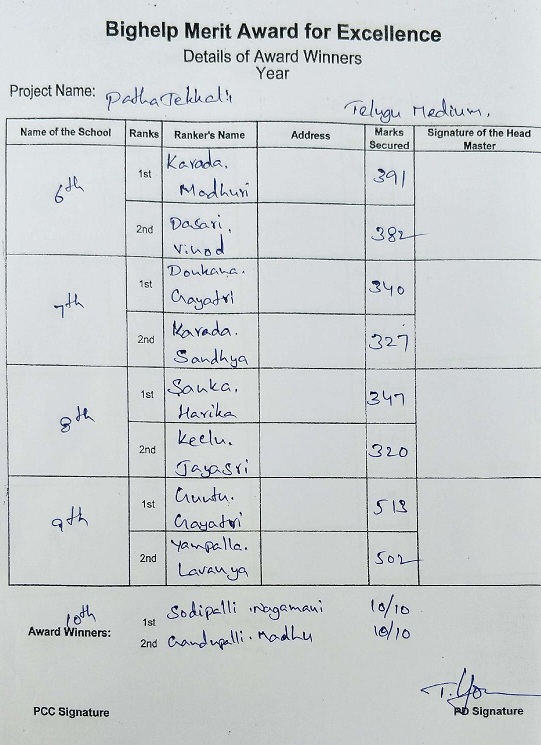 Bighelp Merit Award for Excellence
Details of Award Winners
Year
Project Name: PathaTekkali
Telugu Medium.
Name of the School Ranks Ranker's Name Address Marks Secured Signature of the Head Master
6th
1st Karada. Madhuri 391
2nd Dasari. Vinod 382
7th
1st Donkana. Gayatri 340
2nd Karada. Sandhya 327
8th
1st Sanka. Harika 347
2nd Keelu. Jayasri 320
9th
1st Guntu. Gayatri 513
2nd Yampalla. Lavanya 502
10th
Award Winners:
1st Sodipalli. Nagamani 10/10
2nd Gandupalli. Madhu 10/10
PCC Signature
PD Signature